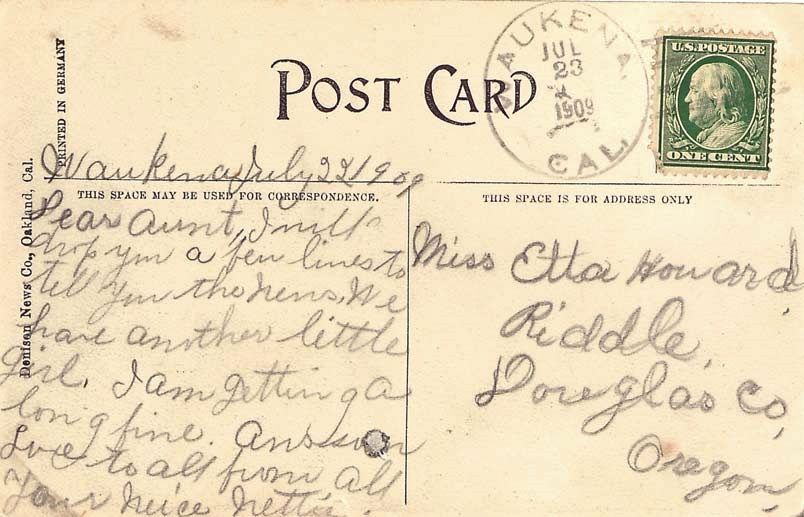 WAUKENA,
JUL
23
1909
CAL.
U.S. POSTAGE
ONE CENT
POST CARD
PRINTED IN GERMANY
Denison News Co., Oakland, Cal.
Waukena July 22 1909
THIS SPACE MAY BE USED FOR CORRESPONDENCE.
Dear Aunt, I will
drop you a few lines to
tell you the news. We
have another little
Girl. I am getting a
long fine. Ans soon
Love to all from all
Your Neice Nettie.
THIS SPACE IS FOR ADDRESS ONLY
Miss Etta Howard,
Riddle,
Doreglas Co,
Oregon,